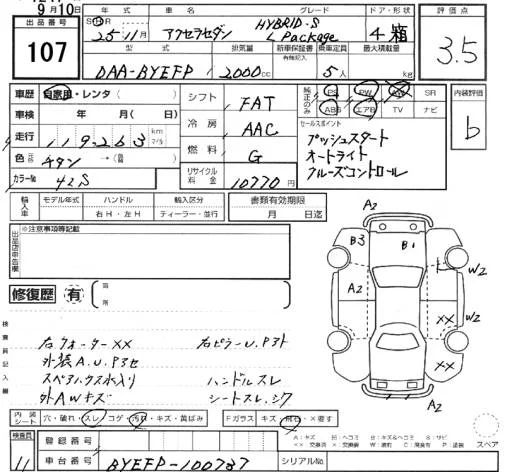 9月10日
出品番号
107
年式 車名 グレード ドア・形状
25年11月 アクセラセダン HYBRID-S L Package 4 箱
評価点
3.5
型式 排気量 新車保証書 乗車定員 最大積載量
有無記入
DAA-BYEFP 2000cc 5人 kg
車歴 自家用・レンタ( )
車検 年 月( )日
走行 119263 km マイル
色 チタン →( )
カラーNo 42S
シフト FAT
冷房 AAC
燃料 G
リサイクル料金 10770円
純正のみ PS PW AW SR
ABS エアB TV ナビ
セールスポイント
プッシュスタート
オートライト
クルーズコントロール
内装評価
b
輸入車 モデル年式 ハンドル 輸入区分
右H・左H ディーラー・並行
書類有効期限
月 日迄
出品店申告欄
※注意事項等記載
修復歴 有
箇所
検査員記入欄
右クォーターXX 右ピラーU.P3ト
外装A.U.P3セ
スペアハウス水入り ハンドルスレ
外AWキズ シートスレ.シワ
A2
B3 B1
A2
W2
W2
XX
XX
A2
スペア
内装シート 穴・破れ・スレ・コゲ・汚れ・キズ・黄ばみ
Fガラス キズ・飛石・X要す
検査員
11
登録番号
車台番号 BYEFP-100787
シリアルNo.